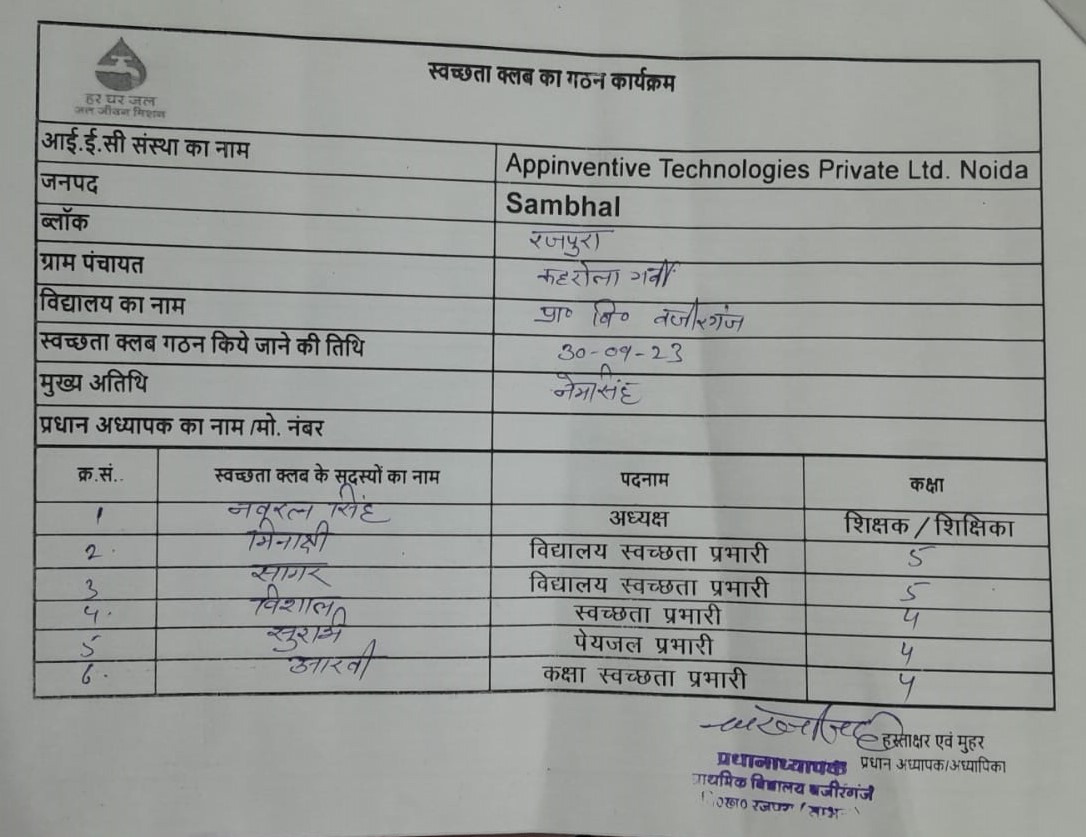 हर घर जल
जल जीवन मिशन
स्वच्छता क्लब का गठन कार्यक्रम
आई.ई.सी संस्था का नाम Appinventive Technologies Private Ltd. Noida
जनपद Sambhal
ब्लॉक रजपुरा
ग्राम पंचायत कहरोला गर्वी
विद्यालय का नाम प्रा० बि० वजीरगंज
स्वच्छता क्लब गठन किये जाने की तिथि 30-09-23
मुख्य अतिथि नेमसिंह
प्रधान अध्यापक का नाम /मो. नंबर
क्र.सं.. स्वच्छता क्लब के सदस्यों का नाम पदनाम कक्षा
1 नवरत्न सिंह अध्यक्ष शिक्षक / शिक्षिका
2. मिनाक्षी विद्यालय स्वच्छता प्रभारी 5
3 सागर विद्यालय स्वच्छता प्रभारी 5
4. विशाल स्वच्छता प्रभारी 4
5 सुरभि पेयजल प्रभारी 4
6. आरवी कक्षा स्वच्छता प्रभारी 4
हस्ताक्षर एवं मुहर
प्रधान अध्यापक/अध्यापिका
प्रधानाध्यापक
प्राथमिक विद्यालय वजीरगंज
रजपुरा